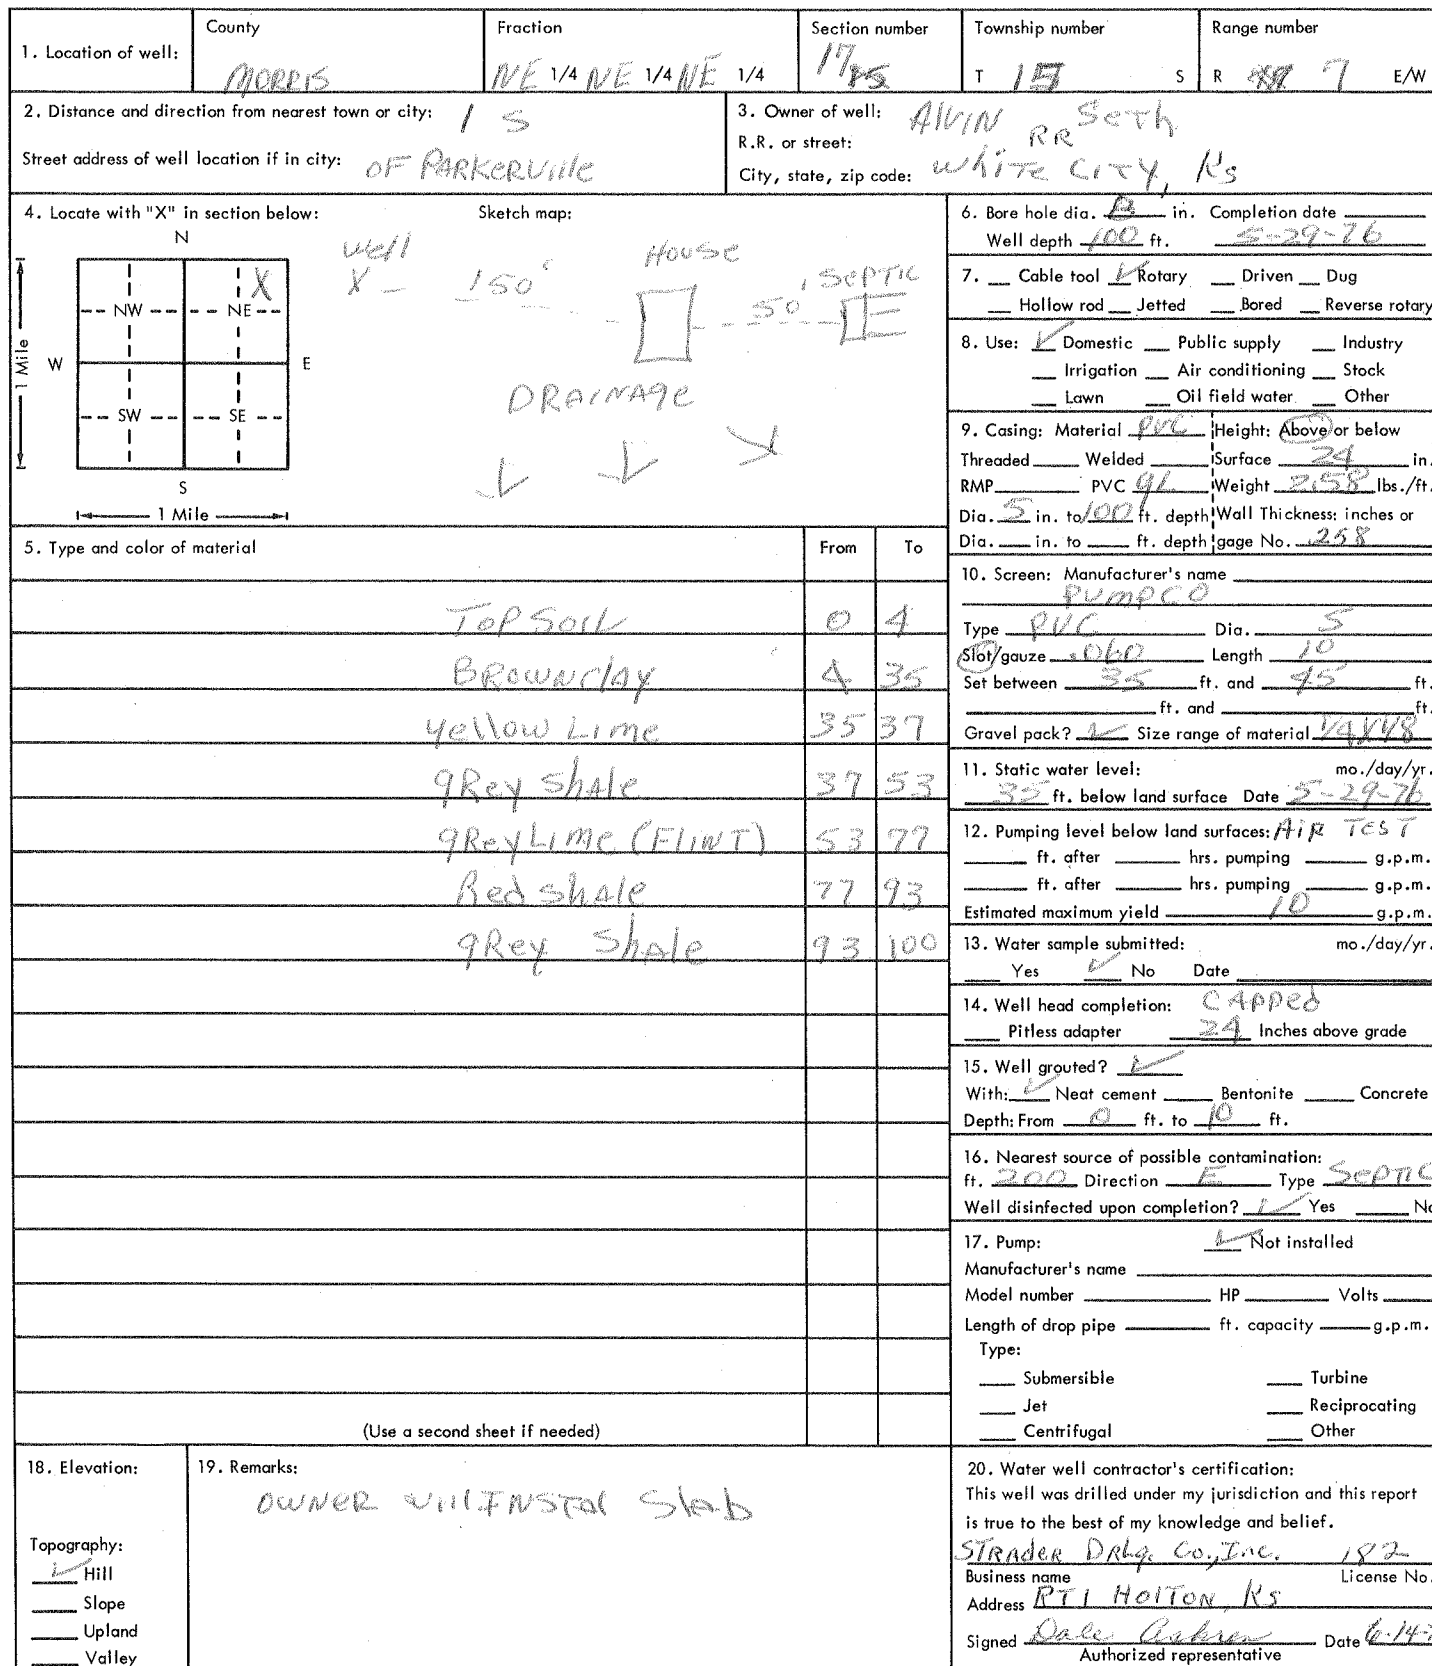 1. Location of well:
County
MORRIS
Fraction
NE 1/4 NE 1/4 NE 1/4
Section number
17
Township number
T 15 S
Range number
R 7 E/W
2. Distance and direction from nearest town or city: 1 S
Street address of well location if in city: OF PARKERVille
3. Owner of well: AlVIN Seth
R.R. or street: RR
City, state, zip code: White CITY, Ks
4. Locate with "X" in section below:
Sketch map:
N
X
NW NE
W E
SW SE
S
1 Mile
1 Mile
well
X 150'
House
50' SEPTIC
DRAINAGE
5. Type and color of material From To
Top Soil 0 4
BROWN clay 4 35
yellow Lime 35 37
gRey ShAle 37 53
gRey Lime (FLINT) 53 77
Red shale 77 93
gRey ShAle 93 100
(Use a second sheet if needed)
6. Bore hole dia. in. Completion date
Well depth 100 ft. 5-29-76
7. Cable tool ✓ Rotary Driven Dug
Hollow rod Jetted Bored Reverse rotary
8. Use: ✓ Domestic Public supply Industry
Irrigation Air conditioning Stock
Lawn Oil field water Other
9. Casing: Material PVC Height: Above or below
Threaded Welded Surface 24 in.
RMP PVC gL Weight 2.58 lbs./ft.
Dia. 5 in. to 100 ft. depth Wall Thickness: inches or
Dia. in. to ft. depth gage No. .258
10. Screen: Manufacturer's name
PUMPCO
Type PVC Dia. 5
Slot/gauze .060 Length 10
Set between 35 ft. and 45 ft.
ft. and ft.
Gravel pack? ✓ Size range of material 1/4 X 1/8
11. Static water level: mo./day/yr.
35 ft. below land surface Date 5-29-76
12. Pumping level below land surfaces: AIR TEST
ft. after hrs. pumping g.p.m.
ft. after hrs. pumping g.p.m.
Estimated maximum yield 10 g.p.m.
13. Water sample submitted: mo./day/yr.
Yes ✓ No Date
14. Well head completion: CAPPed
Pitless adapter 24 Inches above grade
15. Well grouted? ✓
With: ✓ Neat cement Bentonite Concrete
Depth: From 0 ft. to 10 ft.
16. Nearest source of possible contamination:
ft. 200 Direction E Type SEPTIC
Well disinfected upon completion? ✓ Yes No
17. Pump: ✓ Not installed
Manufacturer's name
Model number HP Volts
Length of drop pipe ft. capacity g.p.m.
Type:
Submersible Turbine
Jet Reciprocating
Centrifugal Other
18. Elevation:
Topography:
✓ Hill
Slope
Upland
Valley
19. Remarks:
OWNER will INSTal Slab
20. Water well contractor's certification:
This well was drilled under my jurisdiction and this report
is true to the best of my knowledge and belief.
STRADER DRLg. Co., Inc. 182
Business name License No.
Address RT1 HOLTON, Ks
Signed Dale Date 6-14-
Authorized representative